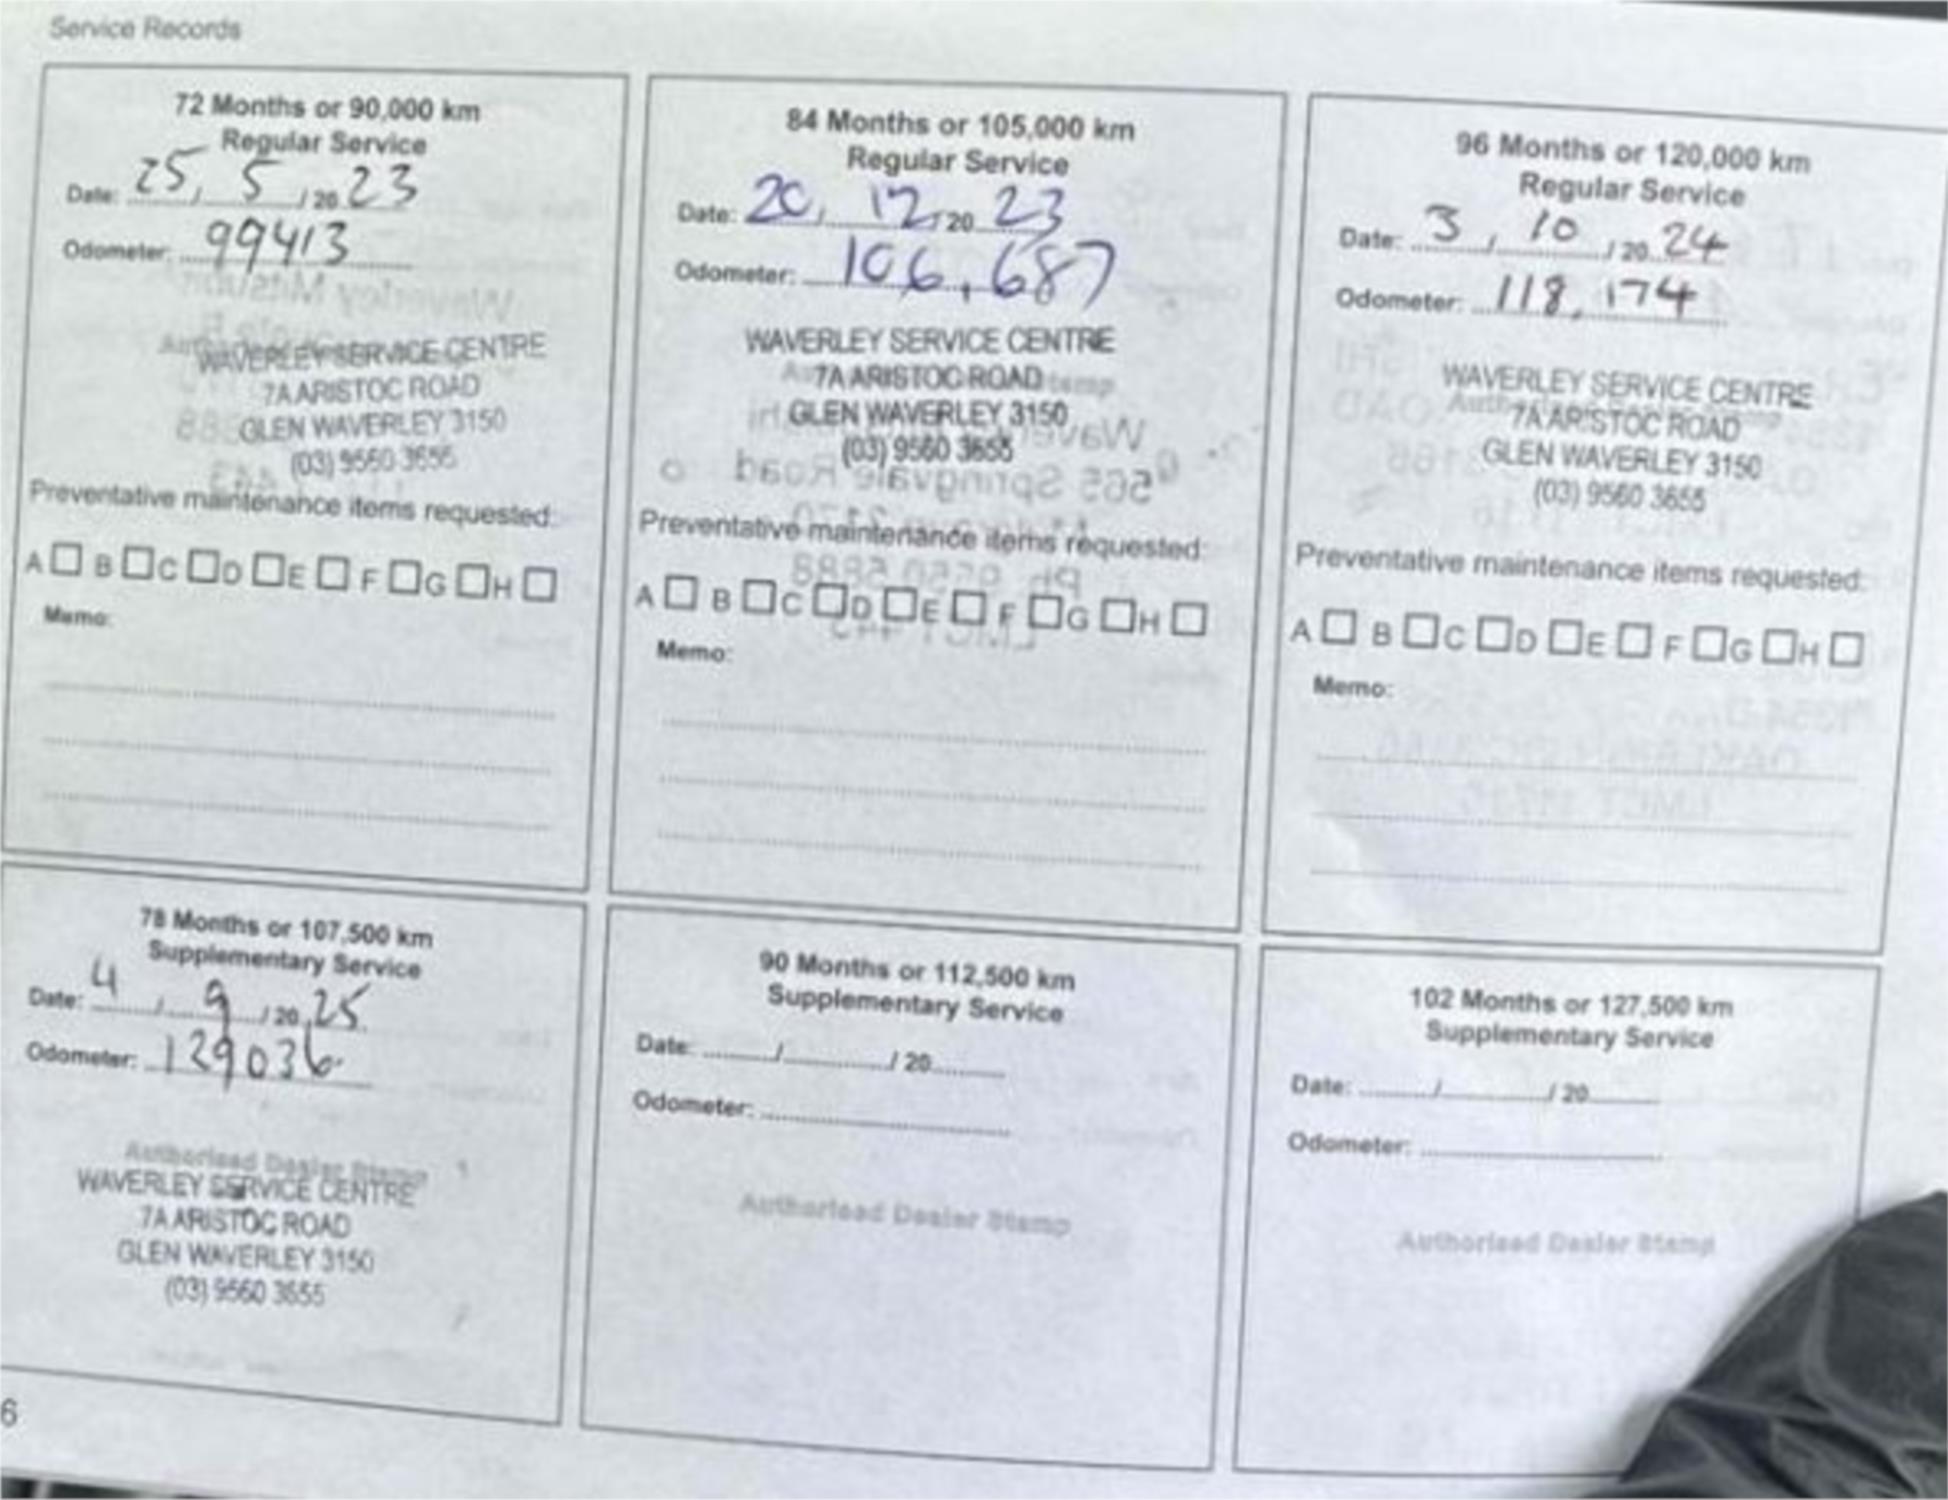 Service Records
72 Months or 90,000 km
Regular Service
Date: 25, 5 / 20 23
Odometer: 99413
WAVERLEY SERVICE CENTRE
7A ARISTOC ROAD
GLEN WAVERLEY 3150
(03) 9560 3655
Preventative maintenance items requested:
A B C D E F G H
Memo:
84 Months or 105,000 km
Regular Service
Date: 20, 12, 20 23
Odometer: 106,687
WAVERLEY SERVICE CENTRE
7A ARISTOC ROAD
GLEN WAVERLEY 3150
(03) 9560 3655
Preventative maintenance items requested:
A B C D E F G H
Memo:
96 Months or 120,000 km
Regular Service
Date: 3 / 10 / 20 24
Odometer: 118,174
WAVERLEY SERVICE CENTRE
7A ARISTOC ROAD
GLEN WAVERLEY 3150
(03) 9560 3655
Preventative maintenance items requested:
A B C D E F G H
Memo:
78 Months or 107,500 km
Supplementary Service
Date: 4 / 9 / 20 25
Odometer: 129036
Authorised Dealer Stamp
WAVERLEY SERVICE CENTRE
7A ARISTOC ROAD
GLEN WAVERLEY 3150
(03) 9560 3655
90 Months or 112,500 km
Supplementary Service
Date: / / 20
Odometer:
Authorised Dealer Stamp
102 Months or 127,500 km
Supplementary Service
Date: / / 20
Odometer:
Authorised Dealer Stamp
6